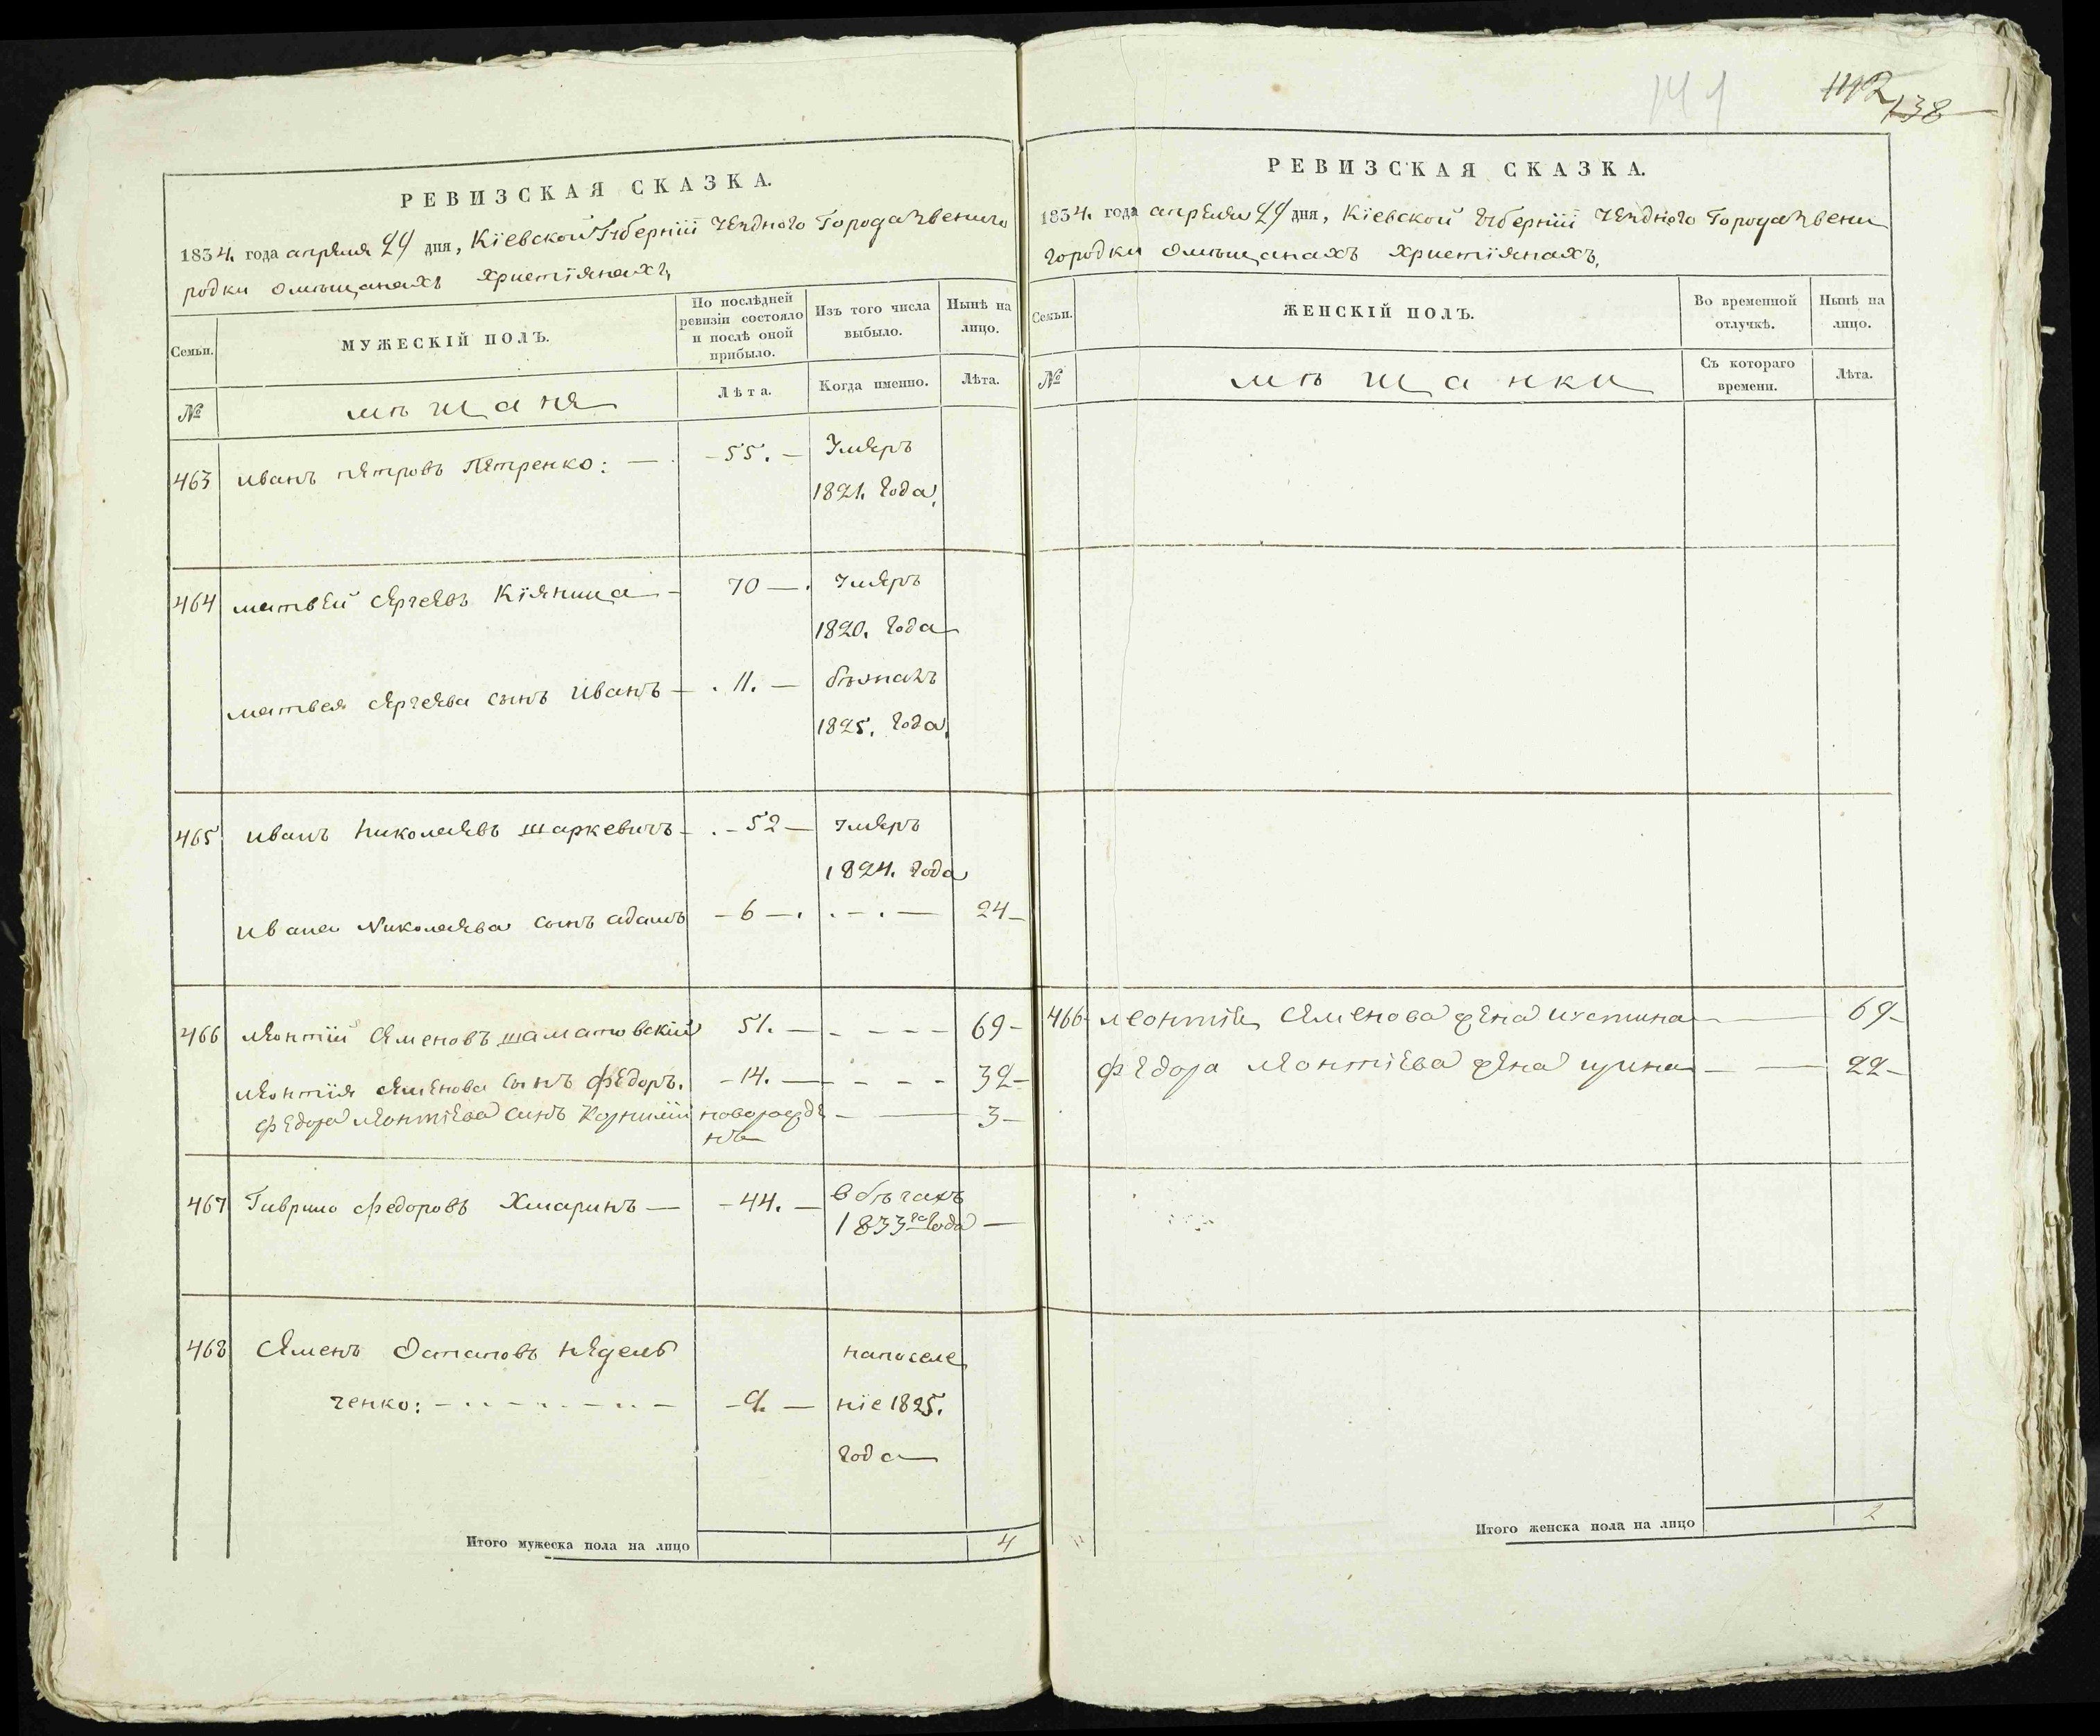 141
142
138
РЕВИЗСКАЯ СКАЗКА.
1834. года апреля 29 дня, Кіевской Губерніи Уезднаго Города Звениго
родки омѣщанахъ Христіянахъ,
Семьи.
МУЖЕСКІЙ ПОЛЪ.
По послѣдней ревизіи состояло и послѣ оной прибыло.
Изъ того числа выбыло.
Нынѣ на лицо.
№
мѣщаня
Лѣта.
Когда именно.
Лѣта.
463 иванъ петровъ Петренко: — 55. — Умеръ
1821. Года,
464 матвей сергеевъ Кіяница — 70 — Умеръ
1820. Года
матвея сергеева сынъ Иванъ — 11. — бѣжалъ
1825. Года,
465 иванъ николаевъ шаркевичъ — 52 — Умеръ
1824. Года
ивана Николаева сынъ адамъ — 6 — . — . — 24 —
466 леонтій Семеновъ шаматовскій 51. — — — — 69 —
леонтія семенова сынъ Федоръ. — 14. — — — — 32 —
Федора леонтіева синъ Корнилій новорожде — — 3 —
нъ
467 Гаврило федоровъ Хмаринъ — 44. — в бѣгахъ
1833го Года —
468 Семенъ Потаповъ недель
ченко: — 9. — напоселе
ніе 1825.
Года
Итого мужеска пола на лицо 4
РЕВИЗСКАЯ СКАЗКА.
1834. года апреля 29 дня, Кіевской Губерніи Уезднаго Города Звени
городки омѣщанахъ Христіянахъ,
Семьи.
ЖЕНСКІЙ ПОЛЪ.
Во временной отлучкѣ.
Нынѣ на лицо.
№
мѣщанки
Съ котораго времени.
Лѣта.
466 леонтія Семенова жена иустина — — 69 —
Федора леонтіева жена ирина — — 22 —
Итого женска пола на лицо 2